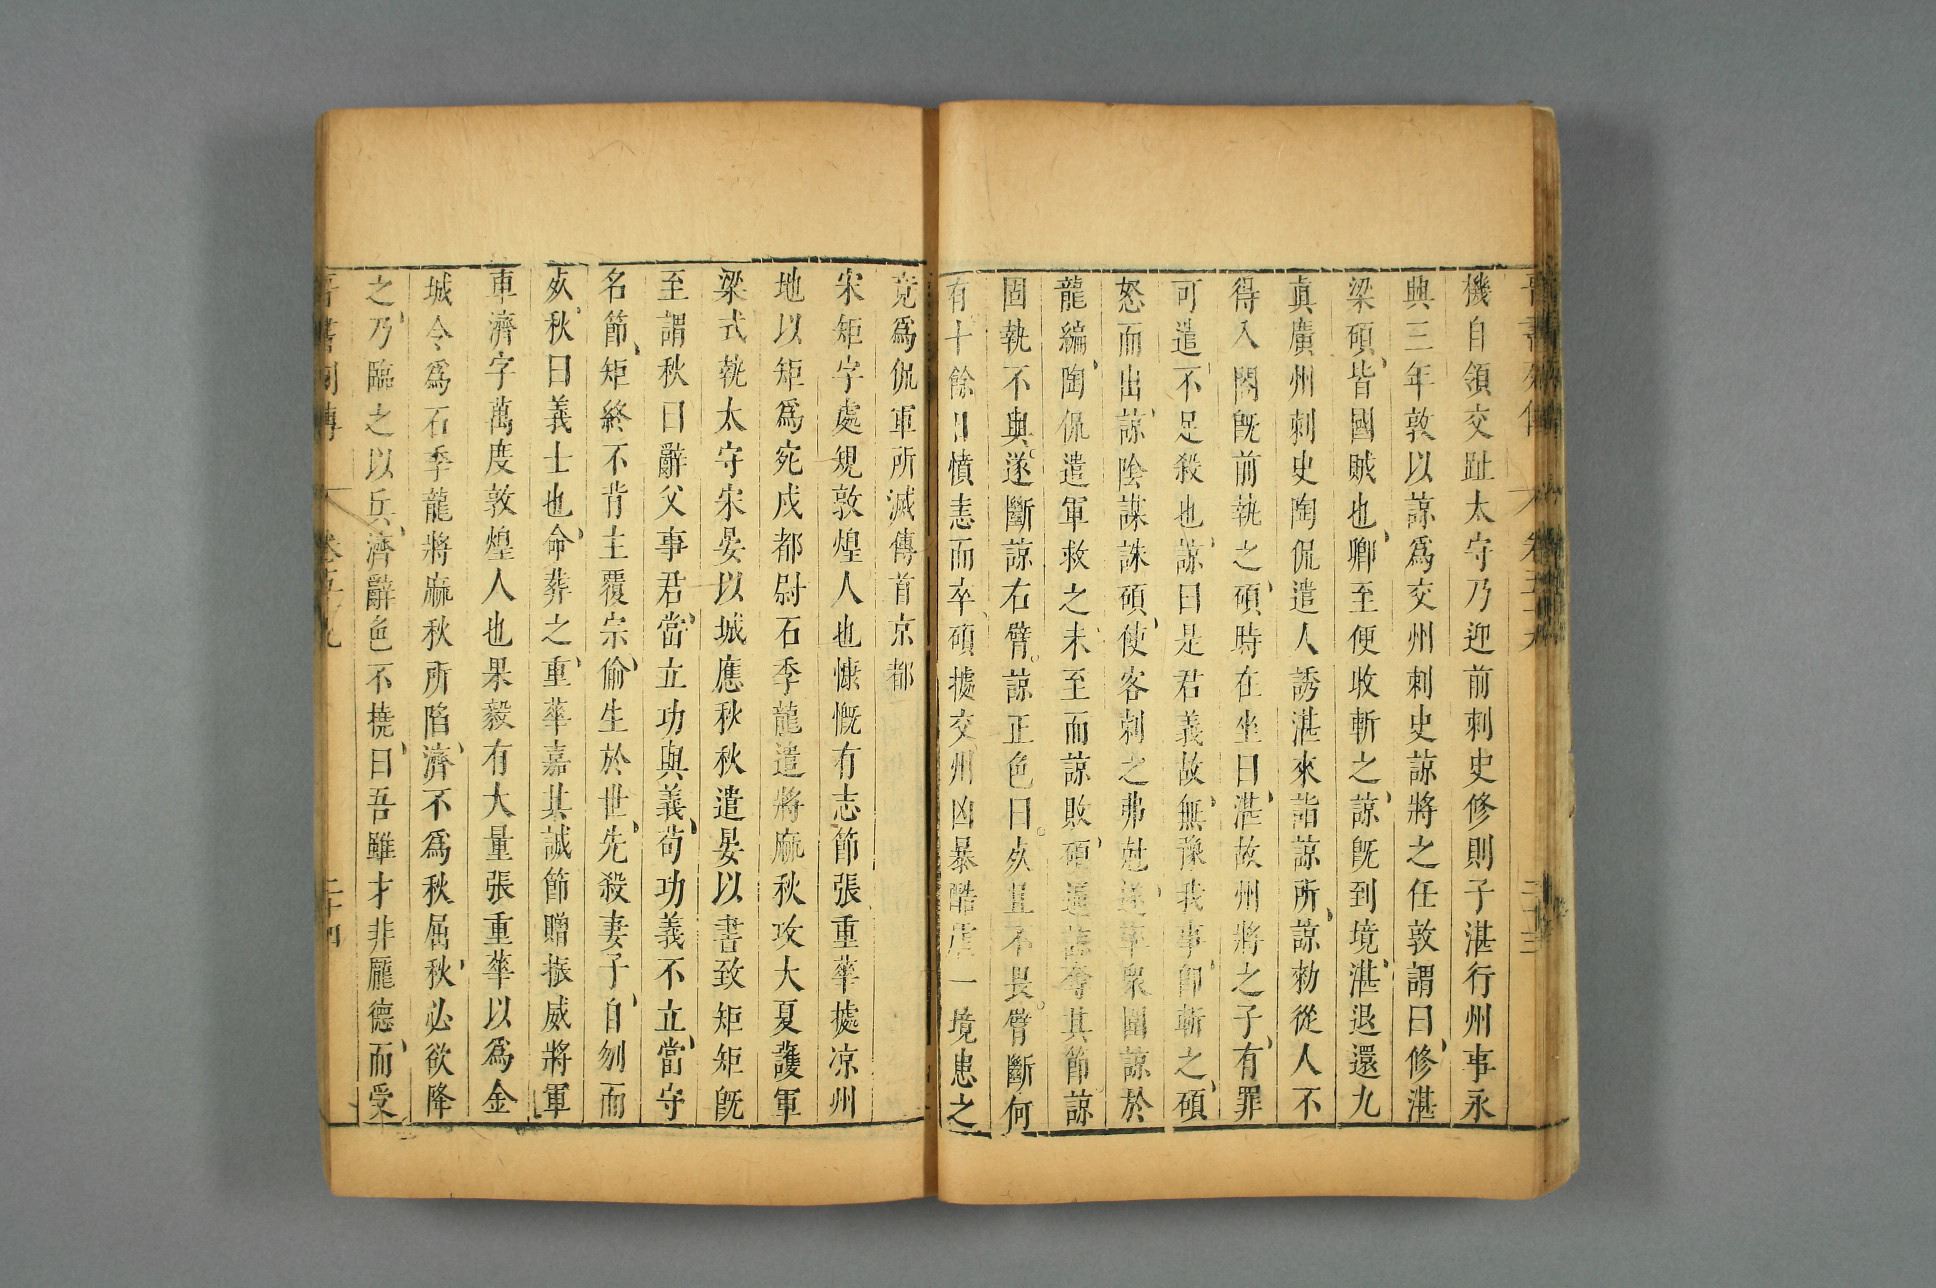 晉書列傳 卷五十九 二十三
機自領交趾太守乃迎前刺史修則子湛行州事永
興三年敦以諒爲交州刺史諒將之任敦謂曰修湛
梁碩皆國賊也卿至便收斬之諒旣到境湛退還九
眞廣州刺史陶侃遣人誘湛來詣諒所諒勑從人不
得入閤旣前執之碩時在坐曰湛故州將之子有罪
可遣不足殺也諒曰是君義故無豫我事卽斬之碩
怒而出諒陰謀誅碩使客刺之弗尅遂率衆圍諒於
龍編陶侃遣軍救之未至而諒敗碩逼諒奪其節諒
固執不與遂斷諒右臂諒正色曰死且不畏臂斷何
有十餘日憤恚而卒碩據交州凶暴酷虐一境患之
竟爲侃軍所滅傳首京都
宋矩字處規敦煌人也慷慨有志節張重華據凉州
地以矩爲宛戍都尉石季龍遣將麻秋攻大夏護軍
梁式執太守宋晏以城應秋秋遣晏以書致矩矩旣
至謂秋曰辭父事君當立功與義苟功義不立當守
名節矩終不背主覆宗偷生於世先殺妻子自刎而
死秋曰義士也命葬之重華嘉其誠節贈振威將軍
車濟字萬度敦煌人也果毅有大量張重華以爲金
城令爲石季龍將麻秋所陷濟不爲秋屈秋必欲降
之乃臨之以兵濟辭色不撓曰吾雖才非龐德而受
晉書列傳 卷五十九 二十四